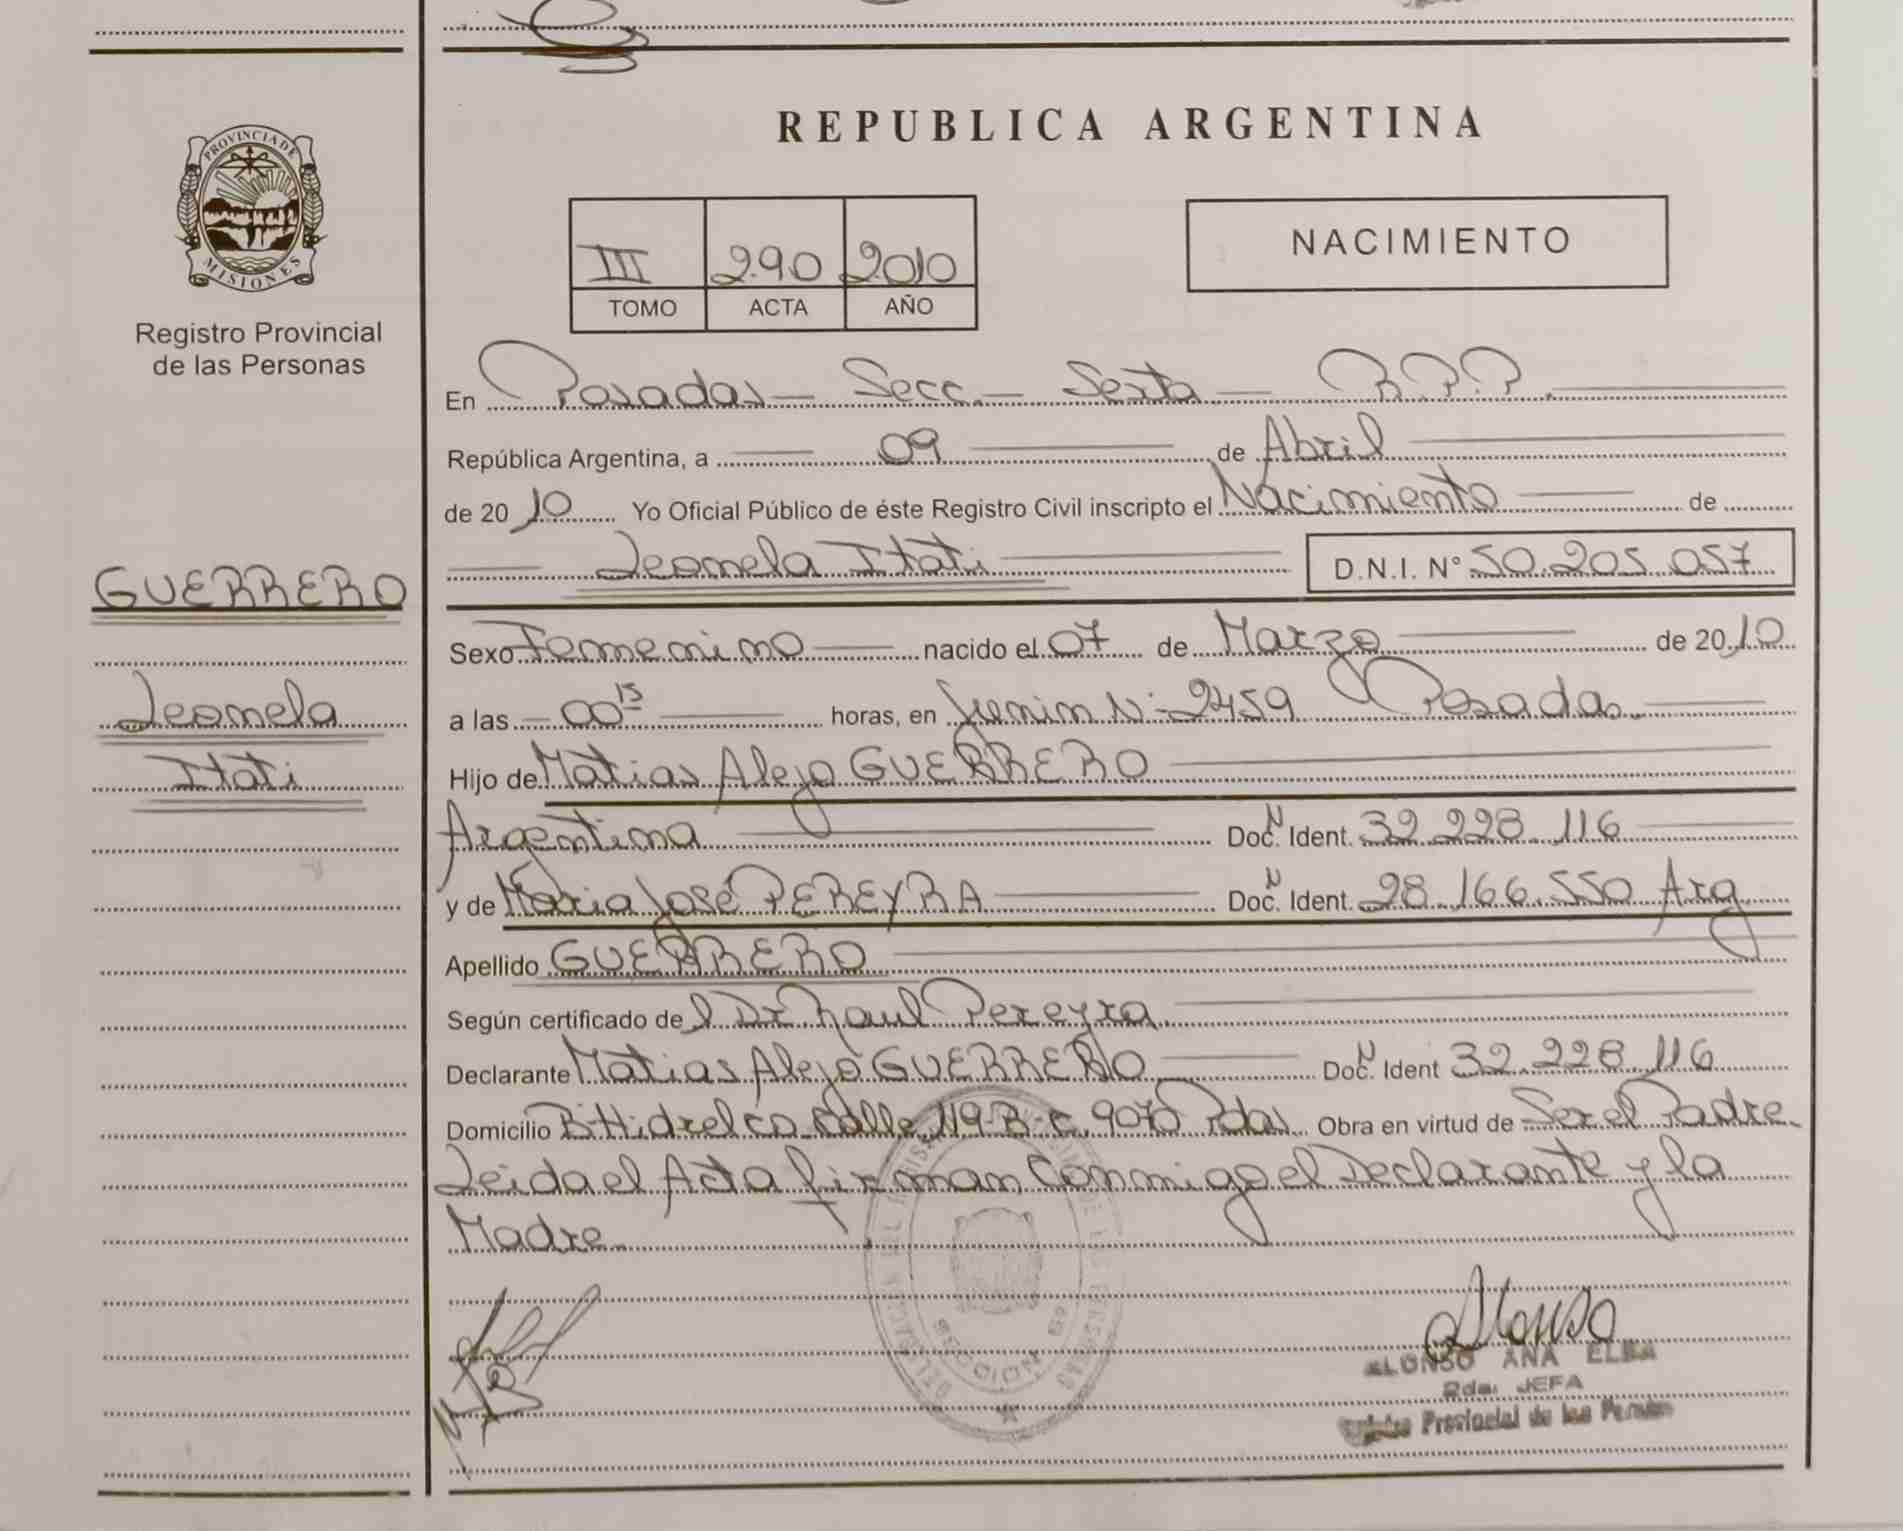 PROVINCIA DE
MISIONES
Registro Provincial
de las Personas
GUERRERO
Leonela
Itati
REPUBLICA ARGENTINA
III 290 2010
TOMO ACTA AÑO
NACIMIENTO
En Posadas - Secc. - Sexta - R.P.P.
República Argentina, a 09 de Abril
de 2010 Yo Oficial Público de éste Registro Civil inscripto el Nacimiento de
Leonela Itati D.N.I. N° 50.205.057
Sexo Femenino nacido el 07 de Marzo de 2010
a las 00 15 horas, en Junin N: 2459 Posadas.
Hijo de Matias Alejo GUERRERO
Argentina Doc. N Ident. 32.228.116
y de Maria José PEREYRA Doc. N Ident. 28.166.550 Arg
Apellido GUERRERO
Según certificado del Dr Raul Pereyra
Declarante Matias Alejo GUERRERO Doc. N Ident 32.228.116
Domicilio B: Hidrelco Calle 119-B- C. 9070 Pdas Obra en virtud de Ser el Padre.
Leida el Acta firman Conmigo el Declarante y la
Madre.
Alonso
ALONSO ANA ELBA
2da. JEFA
Provincial de las Personas